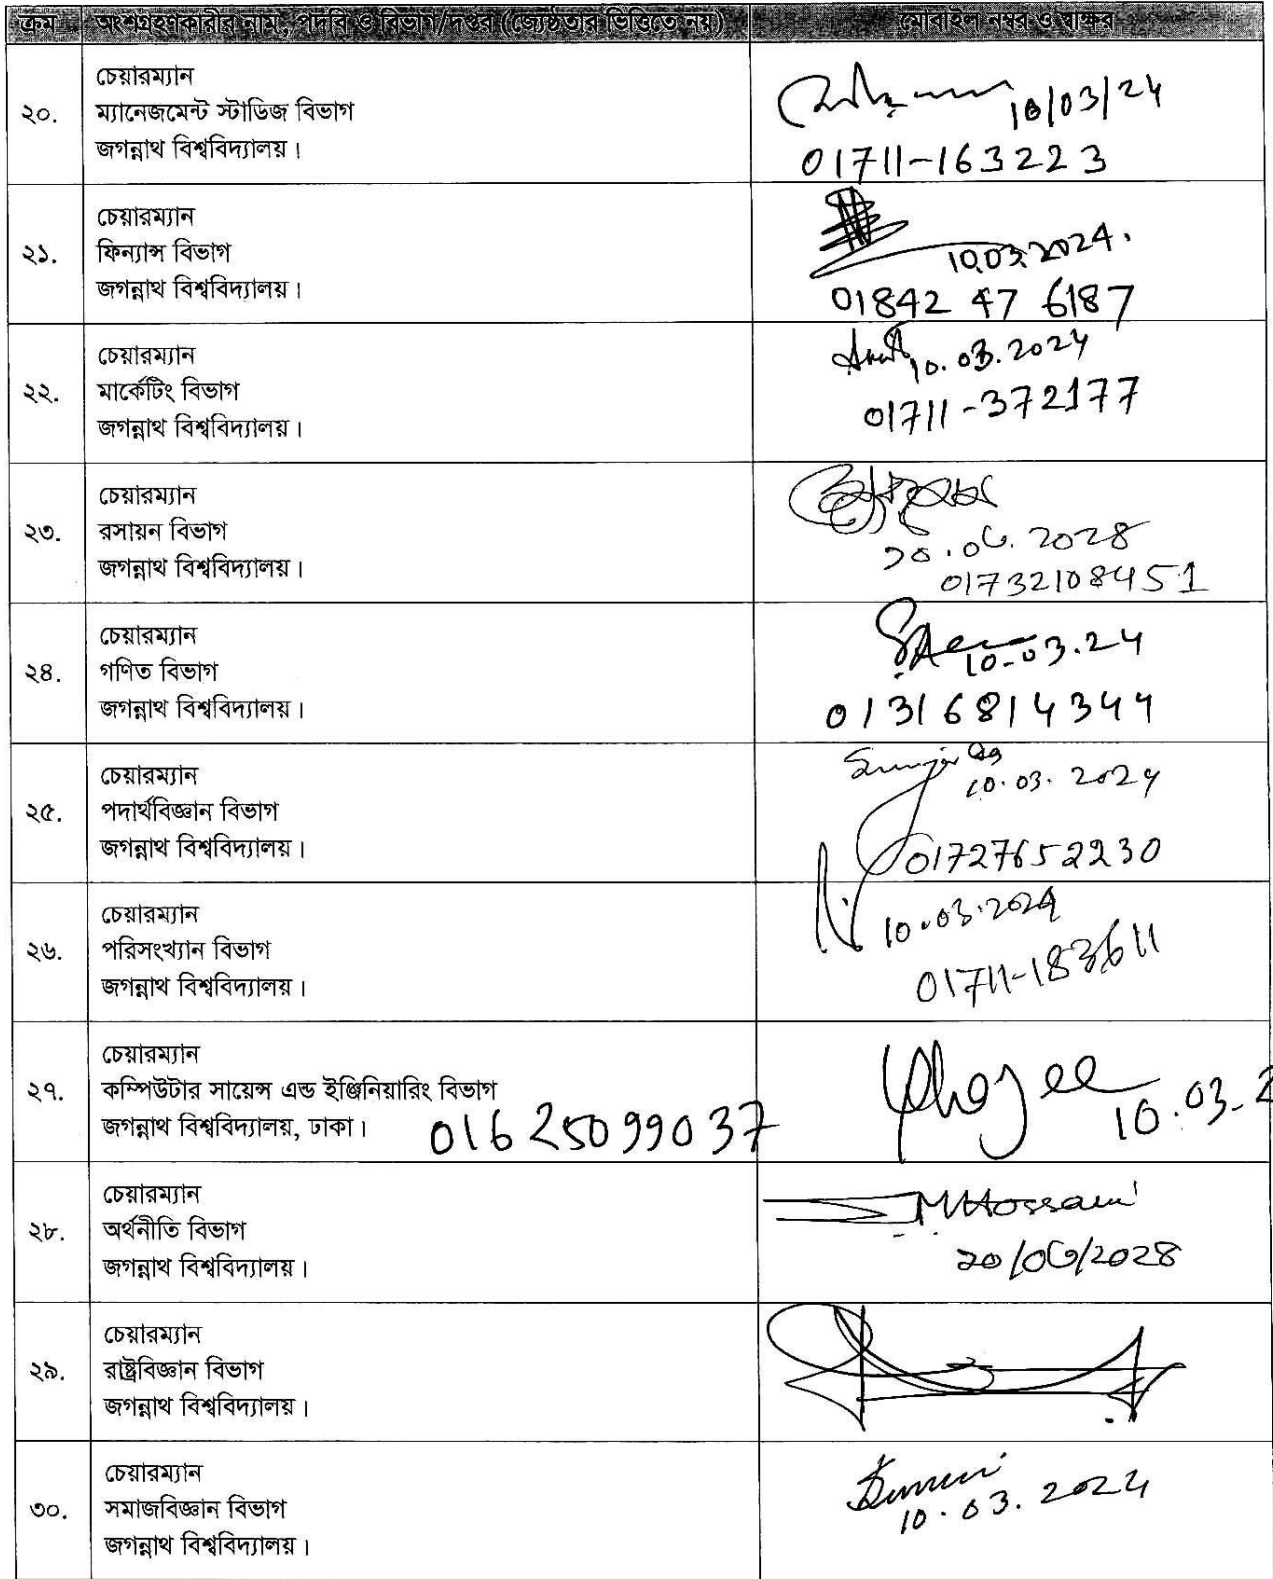 ক্রম অংশগ্রহণকারীর নাম, পদবি ও বিভাগ/দপ্তর (জ্যেষ্ঠতার ভিত্তিতে নয়) মোবাইল নম্বর ও স্বাক্ষর
২০.
চেয়ারম্যান
ম্যানেজমেন্ট স্টাডিজ বিভাগ
জগন্নাথ বিশ্ববিদ্যালয়।
10/03/24
01711-163223
২১.
চেয়ারম্যান
ফিন্যান্স বিভাগ
জগন্নাথ বিশ্ববিদ্যালয়।
10.03.2024.
01842 47 6187
২২.
চেয়ারম্যান
মার্কেটিং বিভাগ
জগন্নাথ বিশ্ববিদ্যালয়।
10.03.2024
01711-372177
২৩.
চেয়ারম্যান
রসায়ন বিভাগ
জগন্নাথ বিশ্ববিদ্যালয়।
১০.০৩.২০২৪
01732108451
২৪.
চেয়ারম্যান
গণিত বিভাগ
জগন্নাথ বিশ্ববিদ্যালয়।
10.03.24
01316814344
২৫.
চেয়ারম্যান
পদার্থবিজ্ঞান বিভাগ
জগন্নাথ বিশ্ববিদ্যালয়।
10.03.2024
01727652230
২৬.
চেয়ারম্যান
পরিসংখ্যান বিভাগ
জগন্নাথ বিশ্ববিদ্যালয়।
10.03.2024
01711-183611
২৭.
চেয়ারম্যান
কম্পিউটার সায়েন্স এন্ড ইঞ্জিনিয়ারিং বিভাগ
জগন্নাথ বিশ্ববিদ্যালয়, ঢাকা। 01625099037
10.03.2
২৮.
চেয়ারম্যান
অর্থনীতি বিভাগ
জগন্নাথ বিশ্ববিদ্যালয়।
MHossain
১০/০৩/২০২৪
২৯.
চেয়ারম্যান
রাষ্ট্রবিজ্ঞান বিভাগ
জগন্নাথ বিশ্ববিদ্যালয়।
৩০.
চেয়ারম্যান
সমাজবিজ্ঞান বিভাগ
জগন্নাথ বিশ্ববিদ্যালয়।
10.03.2024